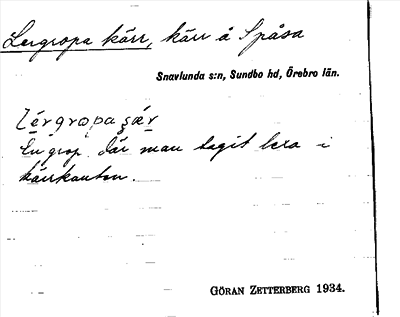 Lergropa kärr, kärr å Spåsa
Snavlunda s:n, Sundbo hd, Örebro län.
Lérgropa çǽr
En grop där man tagit lera i
kärrkanten.
GÖRAN ZETTERBERG 1934.